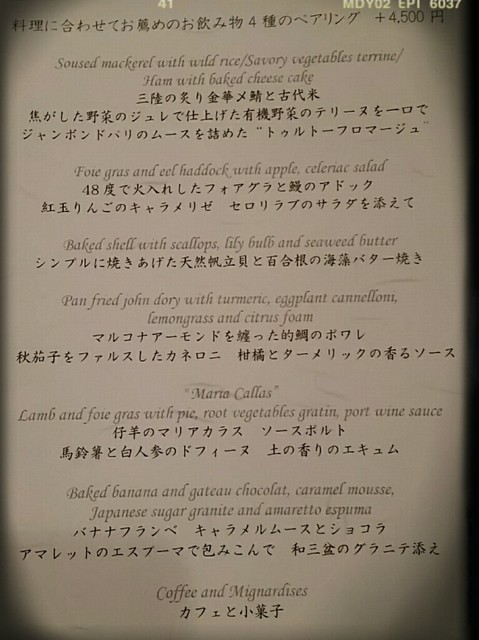 41 MDY02 EPI 6037
料理に合わせてお薦めのお飲み物4種のペアリング +4,500 円
Soused mackerel with wild rice/Savory vegetables terrine/
Ham with baked cheese cake
三陸の炙り金華〆鯖と古代米
焦がした野菜のジュレで仕上げた有機野菜のテリーヌを一口で
ジャンボンドパリのムースを詰めた “トゥルトーフロマージュ”
Foie gras and eel haddock with apple, celeriac salad
48度で火入れしたフォアグラと鰻のアドック
紅玉りんごのキャラメリゼ セロリラブのサラダを添えて
Baked shell with scallops, lily bulb and seaweed butter
シンプルに焼きあげた天然帆立貝と百合根の海藻バター焼き
Pan fried john dory with turmeric, eggplant cannelloni,
lemongrass and citrus foam
マルコナアーモンドを纏った的鯛のポワレ
秋茄子をファルスしたカネロニ 柑橘とターメリックの香るソース
“Maria Callas”
Lamb and foie gras with pie, root vegetables gratin, port wine sauce
仔羊のマリアカラス ソースポルト
馬鈴薯と白人参のドフィーヌ 土の香りのエキュム
Baked banana and gateau chocolat, caramel mousse,
Japanese sugar granite and amaretto espuma
バナナフランベ キャラメルムースとショコラ
アマレットのエスプーマで包みこんで 和三盆のグラニテ添え
Coffee and Mignardises
カフェと小菓子